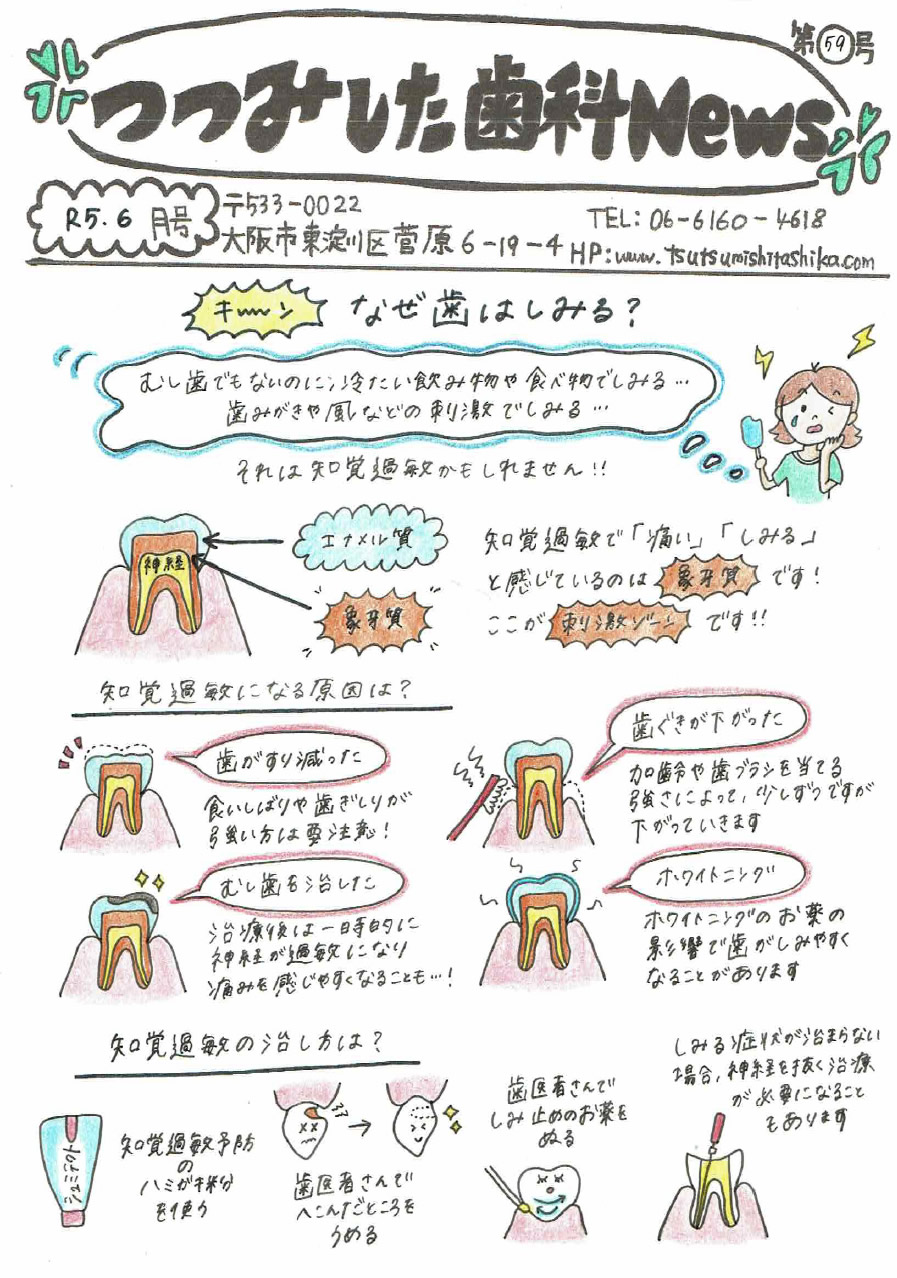 第59号
つつみした歯科News
R5.6月号
〒533-0022
大阪市東淀川区菅原6-19-4
TEL:06-6160-4618
HP:www.tsutsumishitashika.com
キーン なぜ歯はしみる?
むし歯でもないのに冷たい飲み物や食べ物でしみる…
歯みがきや風などの刺激でしみる…
それは知覚過敏かもしれません!!
エナメル質
神経
象牙質
知覚過敏で「痛い」「しみる」
と感じているのは象牙質です!
ここが刺激ゾーンです!!
知覚過敏になる原因は?
歯がすり減った
食いしばりや歯ぎしりが
強い方は要注意!
歯ぐきが下がった
加齢や歯ブラシを当てる
強さによって、少しずつですが
下がっていきます
むし歯を治した
治療後は一時的に
神経が過敏になり
痛みを感じやすくなることも…!
ホワイトニング
ホワイトニングのお薬の
影響で歯がしみやすく
なることがあります
知覚過敏の治し方は?
知覚過敏予防
の
ハミガキ粉
を使う
歯医者さんで
へこんだところを
うめる
歯医者さんで
しみ止めのお薬を
ぬる
しみる症状が治まらない
場合、神経を抜く治療
が必要になること
もあります